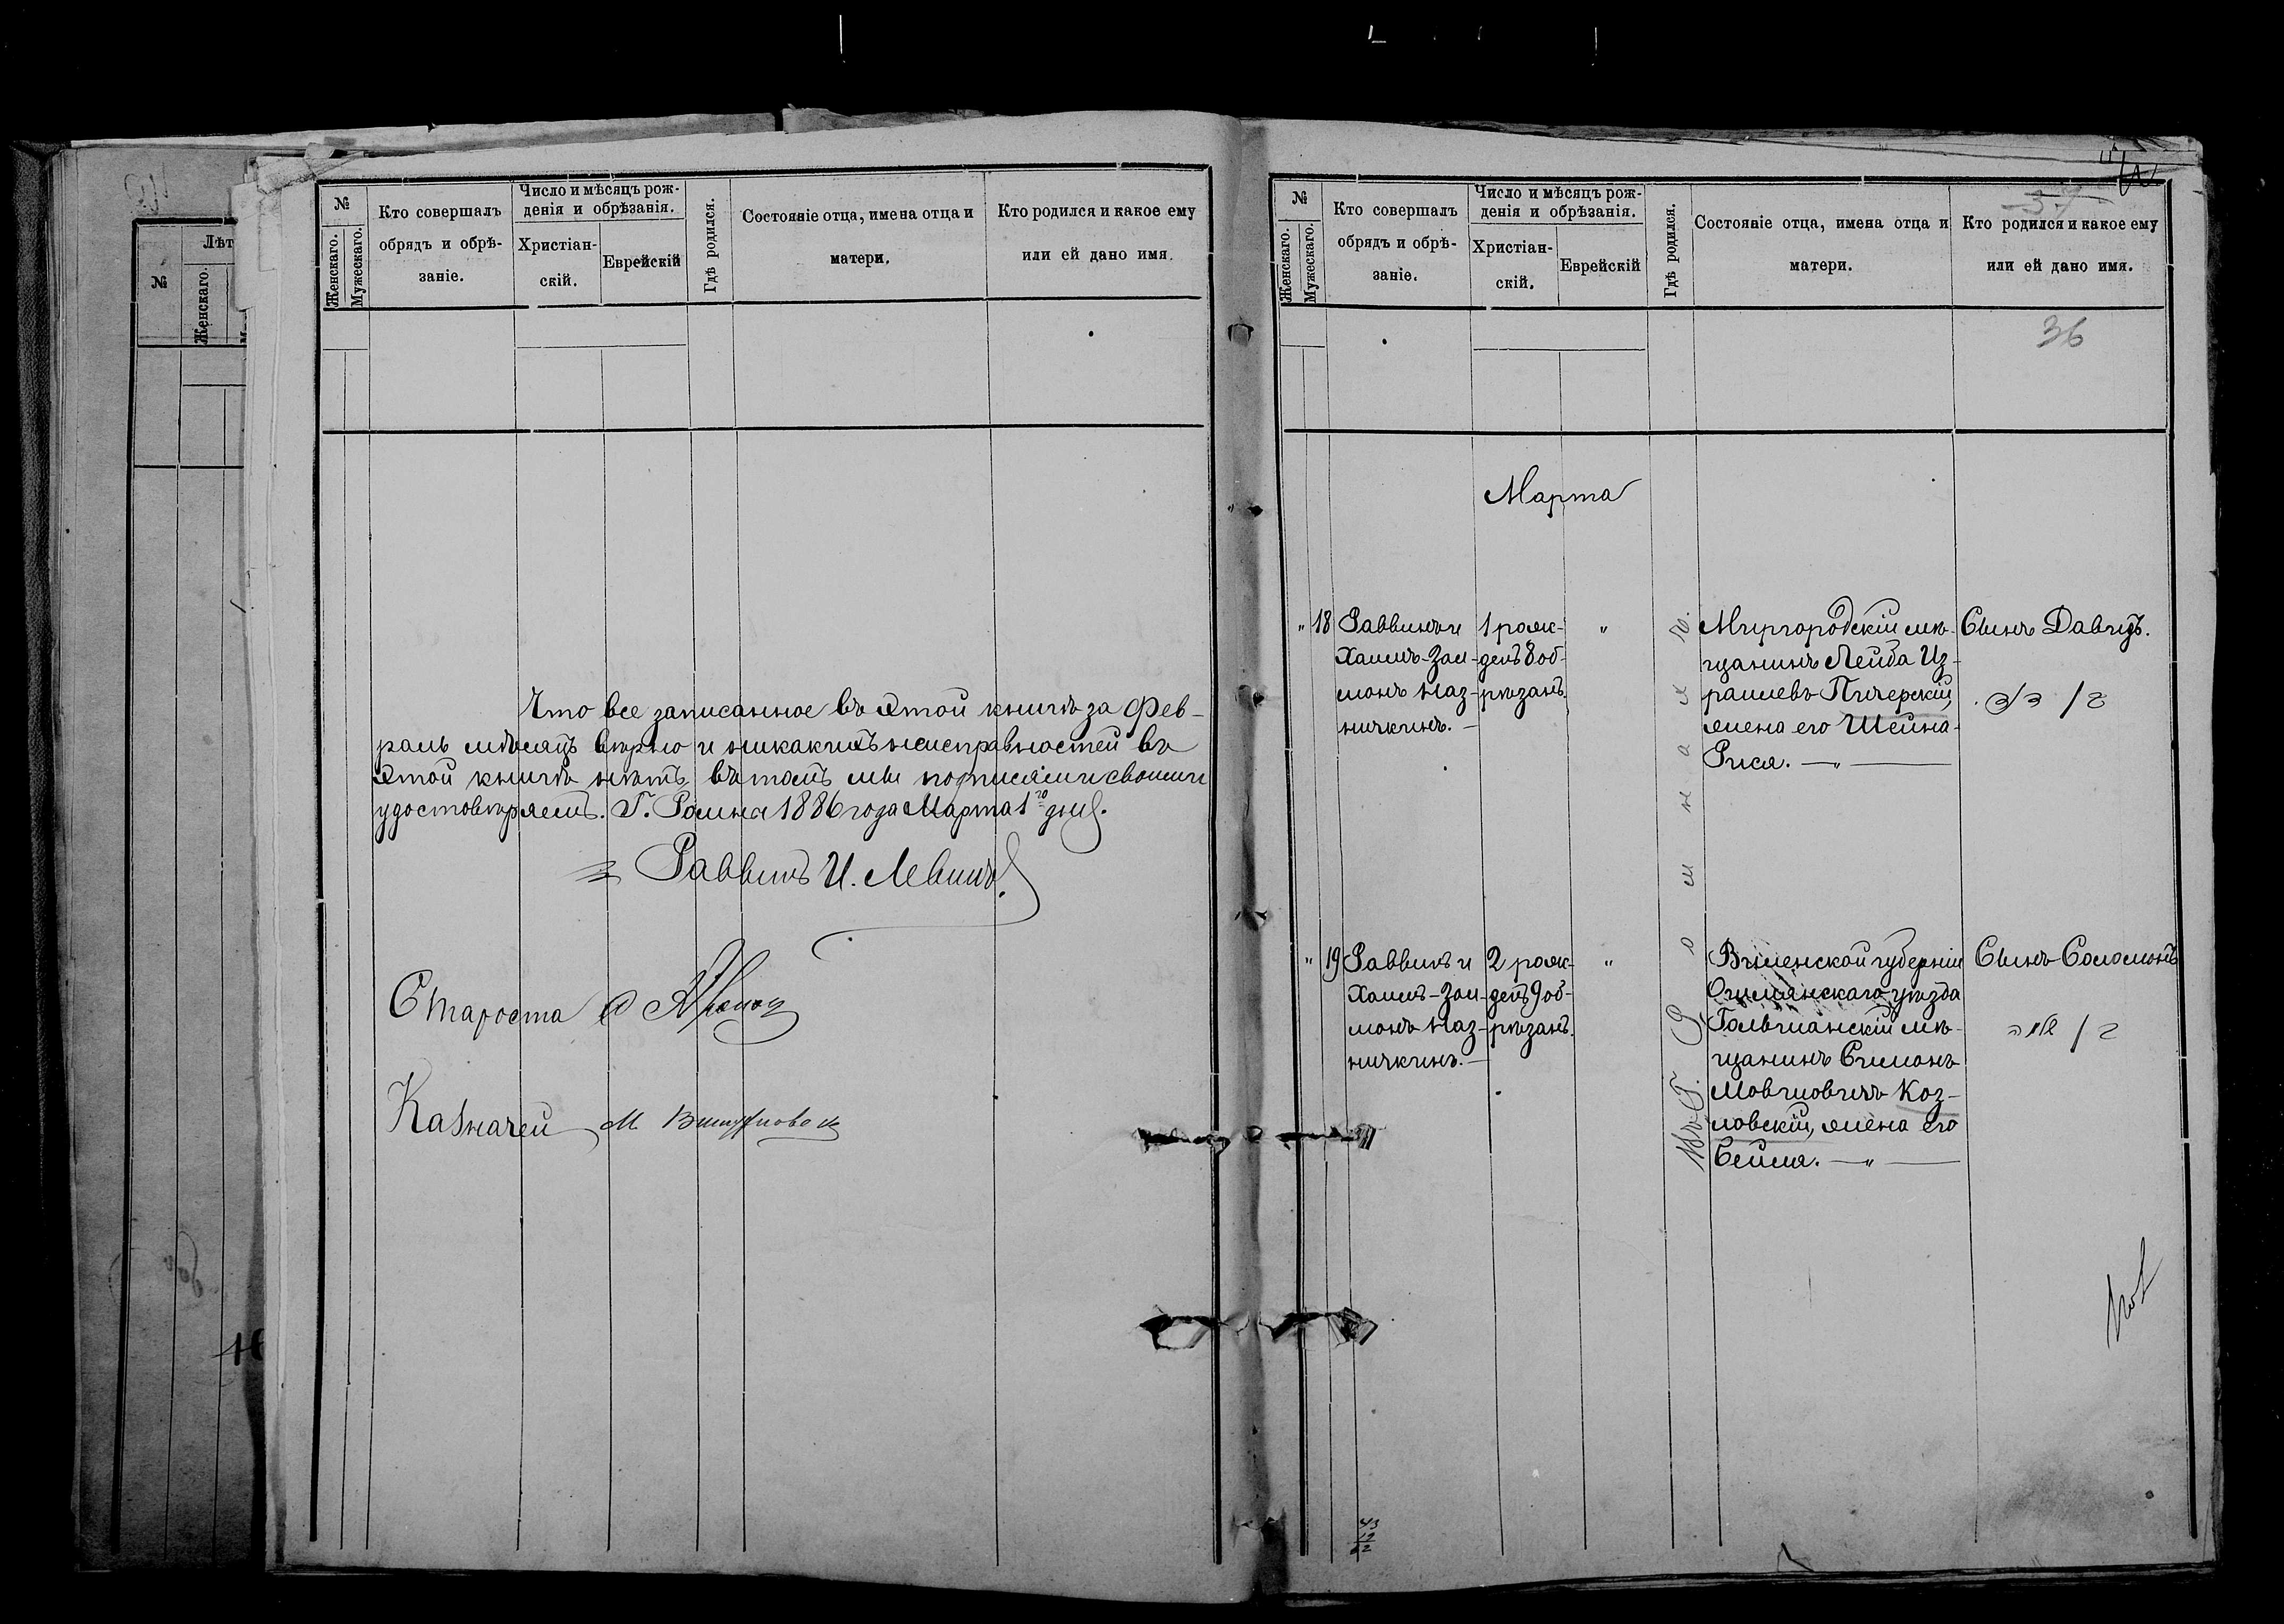 №
Лѣт
Женскаго.
№
Женскаго.
Мужескаго.
Кто совершалъ
обрядъ и обрѣ-
заніе.
Число и мѣсяцъ рож-
денія и обрѣзанія.
Христіан-
скій.
Еврейскій
Гдѣ родился.
Состояніе отца, имена отца и
матери.
Кто родился и какое ему
или ей дано имя.
Что все записанное въ этой книгѣ за Фев-
раль мѣсяцъ вѣрно и никакихъ неисправностей въ
этой книгѣ нѣтъ въ томъ мы подписями своими
удостовѣряемъ. Г. Ромна 1886 года Марта 1го дня.
Раввинъ И. Левинъ
Староста
Казначей М
№
Женскаго.
Мужескаго.
Кто совершалъ
обрядъ и обрѣ-
заніе.
Число и мѣсяцъ рож-
денія и обрѣзанія.
Христіан-
скій.
Еврейскій
Гдѣ родился.
Состояніе отца, имена отца и
матери.
Кто родился и какое ему
или ей дано имя.
36
Марта
" 18
Раввинъ и
Хаимъ-Зал-
монъ Наз-
ничкинъ. —
1 рож-
денъ 8 об-
рѣзанъ.
"
Въ Г. Ромнахъ.
Миргородскій мѣ-
щанинъ Лейба Из-
раилевъ Пичерскій,
жена его Шейна-
Рися. — " —
Сынъ Давидъ.
" 19
Раввинъ и
Хаимъ-Зал-
монъ Наз-
ничкинъ. —
2 рож-
денъ 9 об-
рѣзанъ.
"
Виленской губерніи
Ошмянскаго уѣзда
Гольшанскій мѣ-
щанинъ Симонъ
Мовшовичъ Коз-
ловскій, жена его
Бейля. — " —
Сынъ Соломонъ
43
19
62